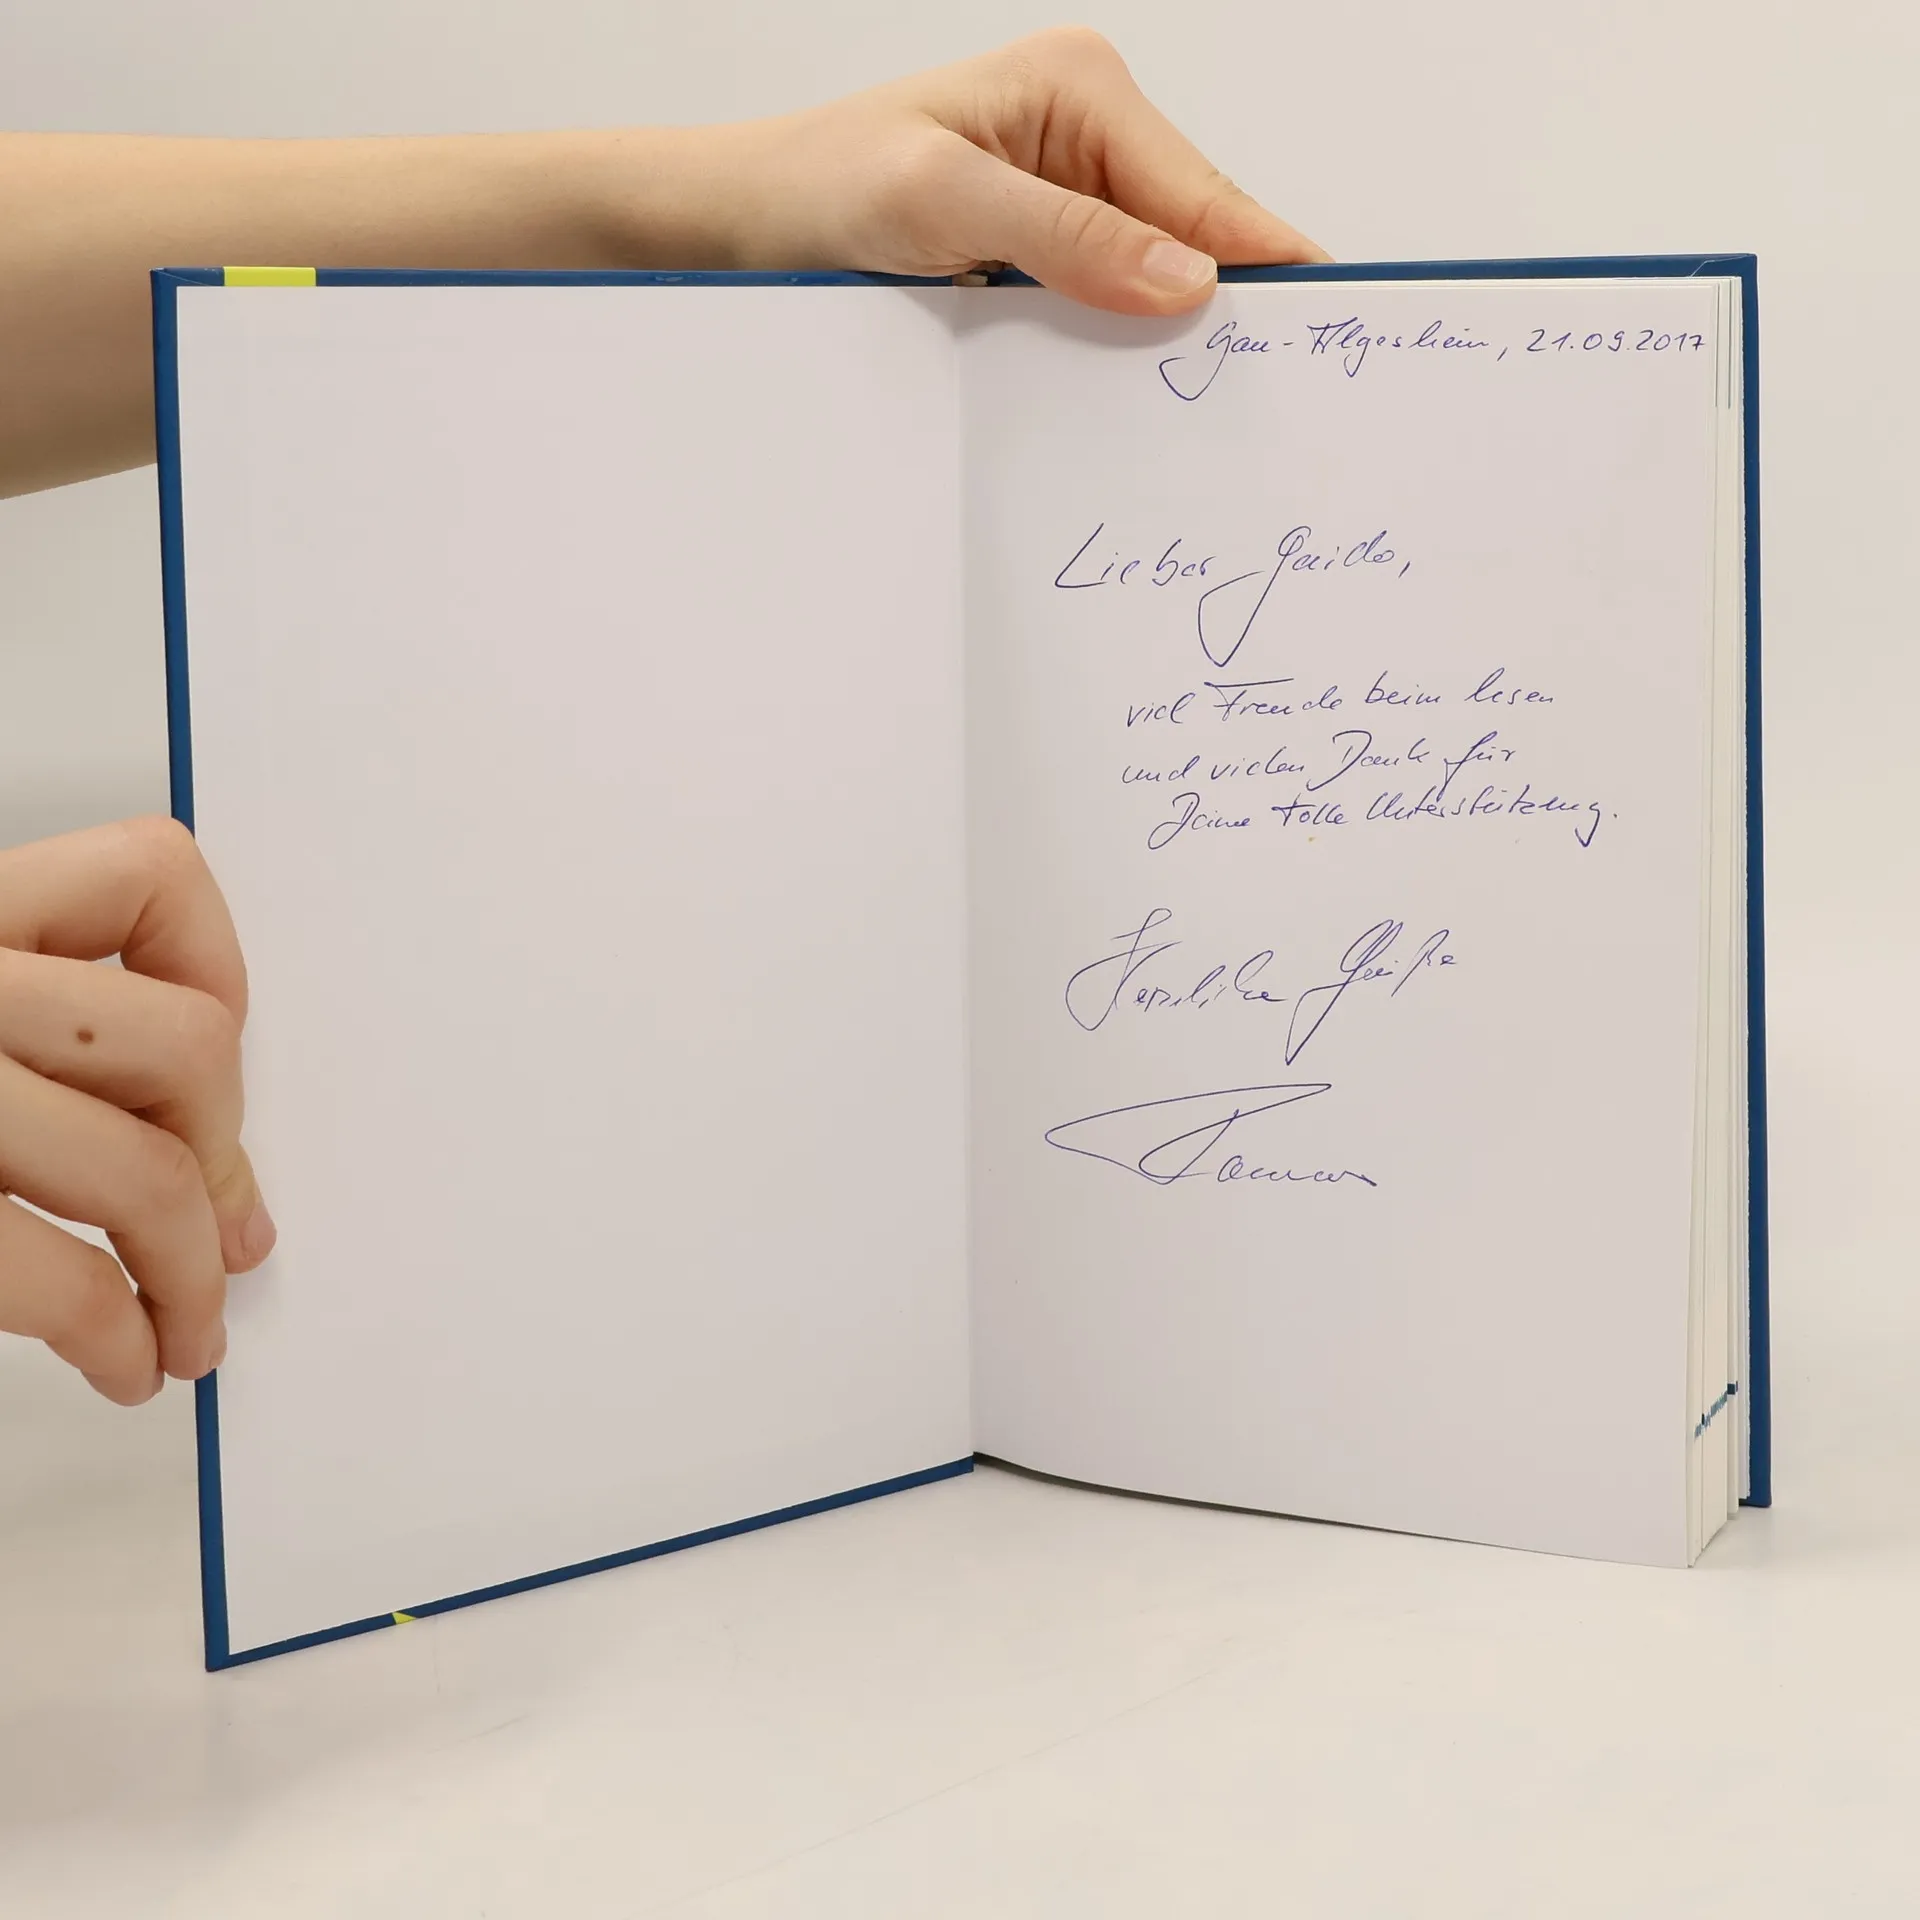 Gau-Algesheim, 21.09.2017
Lieber Guido,
viel Freude beim lesen
und vielen Dank für
Deine tolle Unterstützung.
Herzliche Grüße